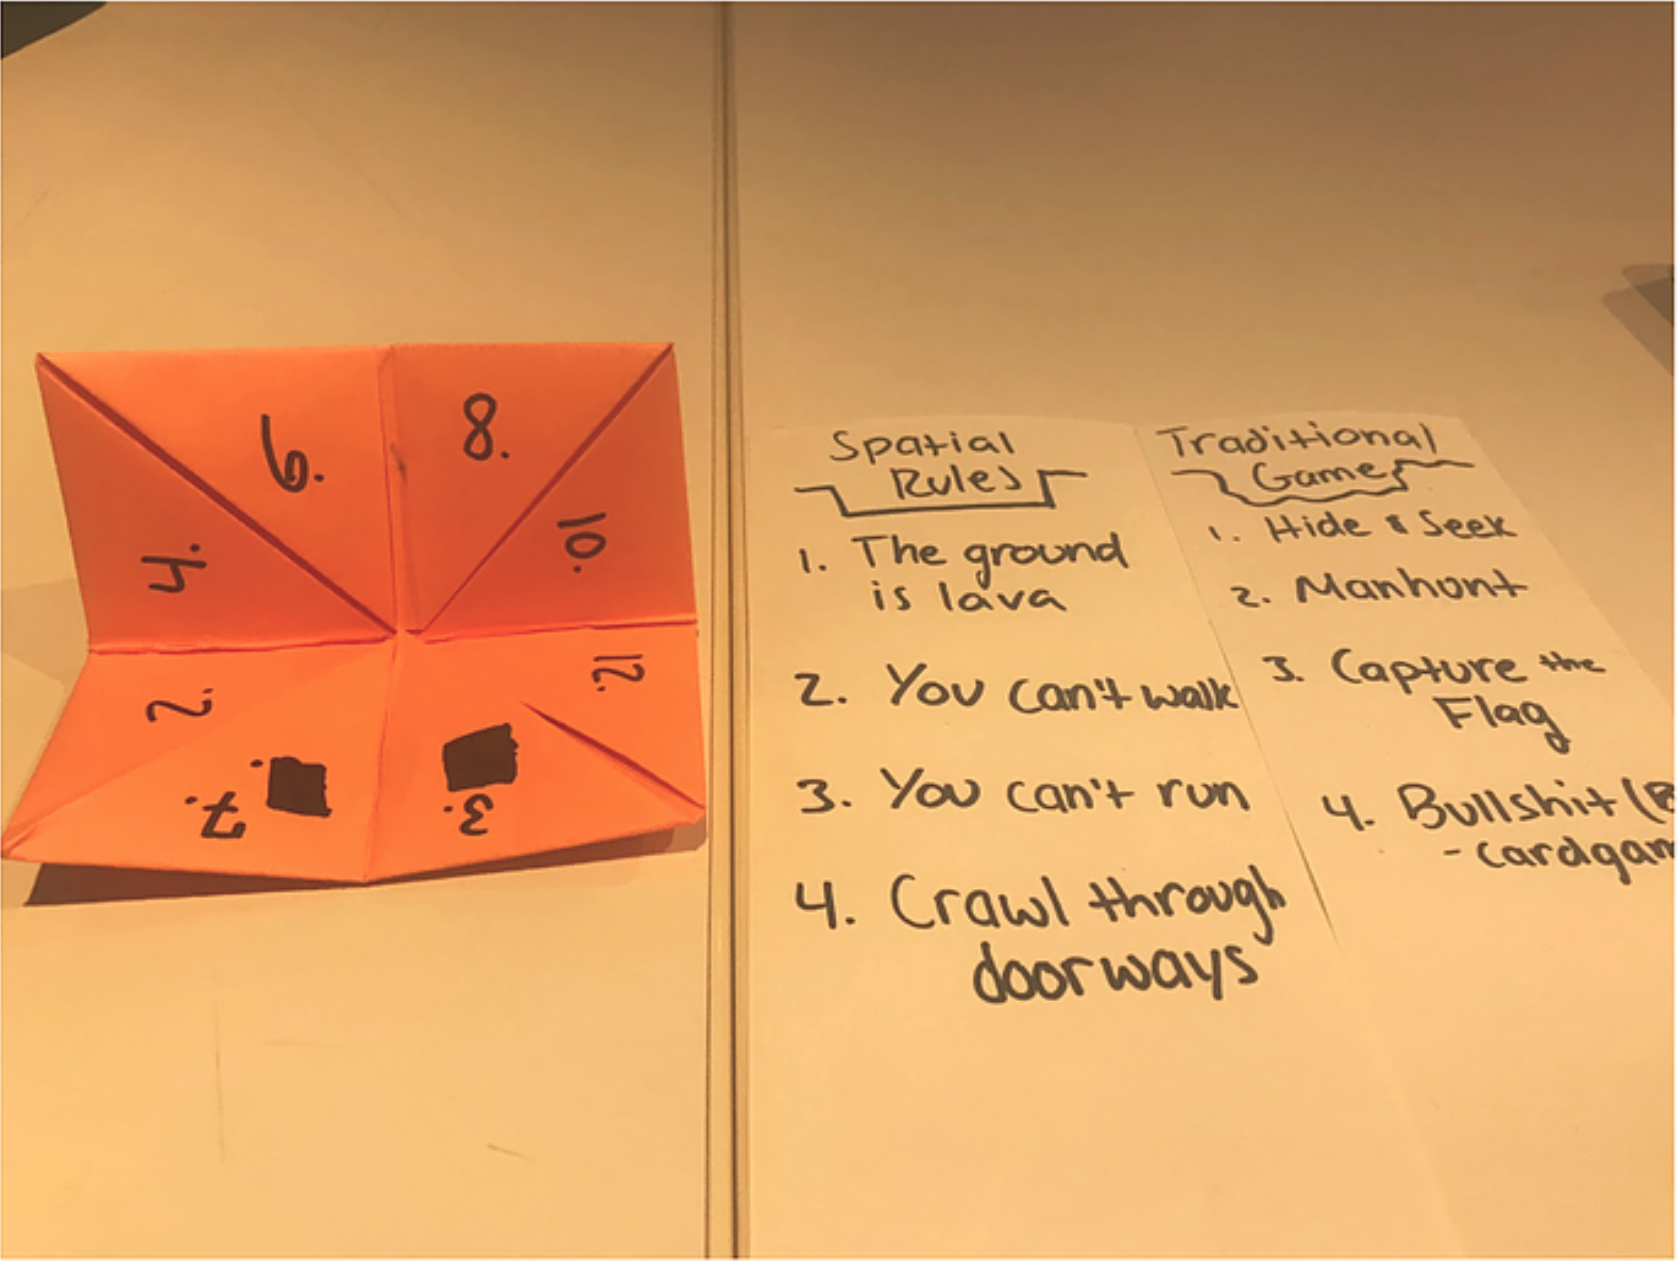 6.
8.
4.
10.
2.
12.
7.
3.
Spatial
Rules
1. The ground
is lava
2. You can't walk
3. You can't run
4. Crawl through
doorways
Traditional
Games
1. Hide & Seek
2. Manhunt
3. Capture the
Flag
4. Bullshit (B
- cardgam